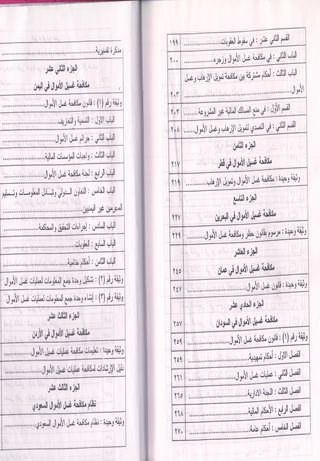 القسم الثاني عشر : في سقوط العقوبات ١٩٩
الباب الثاني : أحكام مكافحة غسل الأموال وزجره ٢٠٠
الباب الثالث : أحكام مشتركة بين مكافحة تمويل الإرهاب وغسل الأموال ٢٠٣
القسم الأول : في منع المسالك المالية غير المشروعة ٢٠٣
القسم الثاني : في التصدي لتمويل الإرهاب وغسل الأموال ٢٠٨
الجزء الثامن
مكافحة غسيل الأموال في قطر ٢١٧
وثيقة وحيدة : قانون مكافحة غسل الأموال وتمويل الإرهاب ٢١٩
الجزء التاسع
مكافحة غسيل الأموال في البحرين ٢٢٧
وثيقة وحيدة : مرسوم بقانون حظر ومكافحة غسل الأموال ٢٢٩
الجزء العاشر
مكافحة غسيل الأموال في عمان ٢٤٥
وثيقة وحيدة : قانون غسل الأموال ٢٤٧
الجزء الحادي عشر
مكافحة غسيل الأموال في السودان ٢٥٧
وثيقة رقم (١) : قانون مكافحة غسل الأموال ٢٥٩
الفصل الأول : أحكام تمهيدية ٢٥٩
الفصل الثاني : عمليات غسل الأموال ٢٦١
الفصل الثالث : اللجنة الادارية ٢٦٥
الفصل الرابع : الأحكام المالية ٢٦٨
الفصل الخامس : أحكام عامة ٢٧٠
مذكرة تفسيرية
الجزء الثاني عشر
مكافحة غسيل الأموال في اليمن
وثيقة رقم (١) : قانون مكافحة غسل الأموال
الباب الاول : التسمية والتعاريف
الباب الثاني : جرائم غسل الأموال
الباب الثالث : واجبات المؤسسات المالية
الباب الرابع : لجنة مكافحة غسل الأموال
الباب الخامس : التعاون الدولي وتبادل المعلومات وتسليم
المجرمين غير اليمنيين
الباب السادس : إجراءات التحقيق والمحاكمة
الباب السابع : العقوبات
الباب الثامن : أحكام ختامية
وثيقة رقم (٢) : تشكيل وحدة جمع المعلومات لعمليات غسل الأموال
وثيقة رقم (٣) : إنشاء وحدة جمع المعلومات لعمليات غسل الأموال
الجزء الثالث عشر
مكافحة غسيل الأموال في الأردن
وثيقة وحيدة : تعليمات مكافحة عمليات غسيل الأموال
دليل الإرشادات لمكافحة عمليات غسيل الأموال
الجزء الثالث عشر
نظام مكافحة غسل الأموال السعودي
وثيقة وحيدة : نظام مكافحة غسل الأموال السعودي